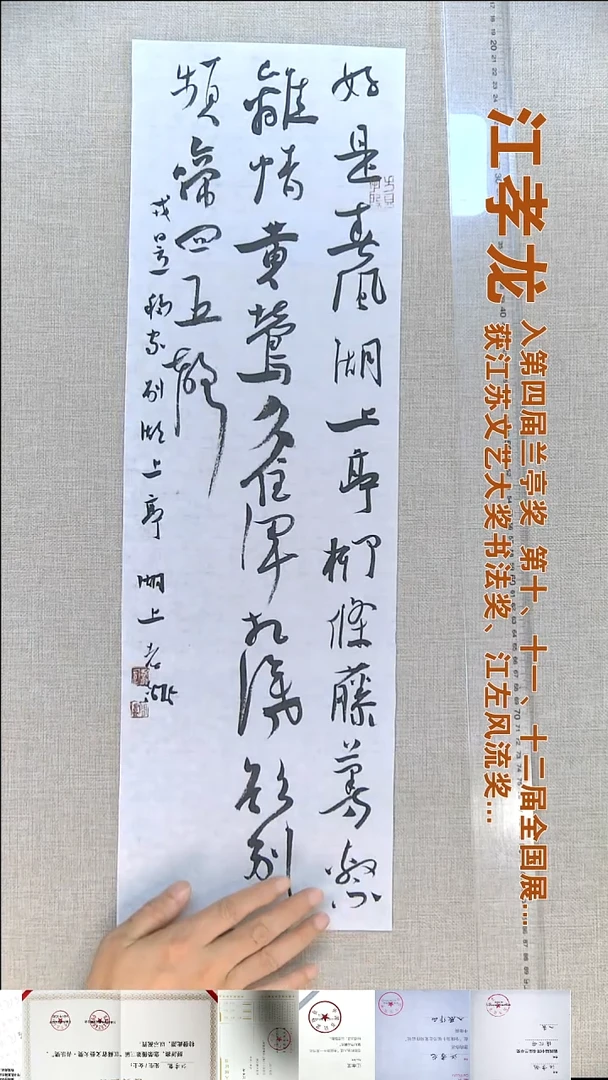 江孝龙
入第四届兰亭奖 第十、十一、十二届全国展...
获江苏文艺大奖书法奖、江左风流奖...
好是春风湖上亭柳條藤蔓繫
離情黄鶯久住渾相識欲别
頻啼四五聲
戎昱移家别湖上亭 湖上老